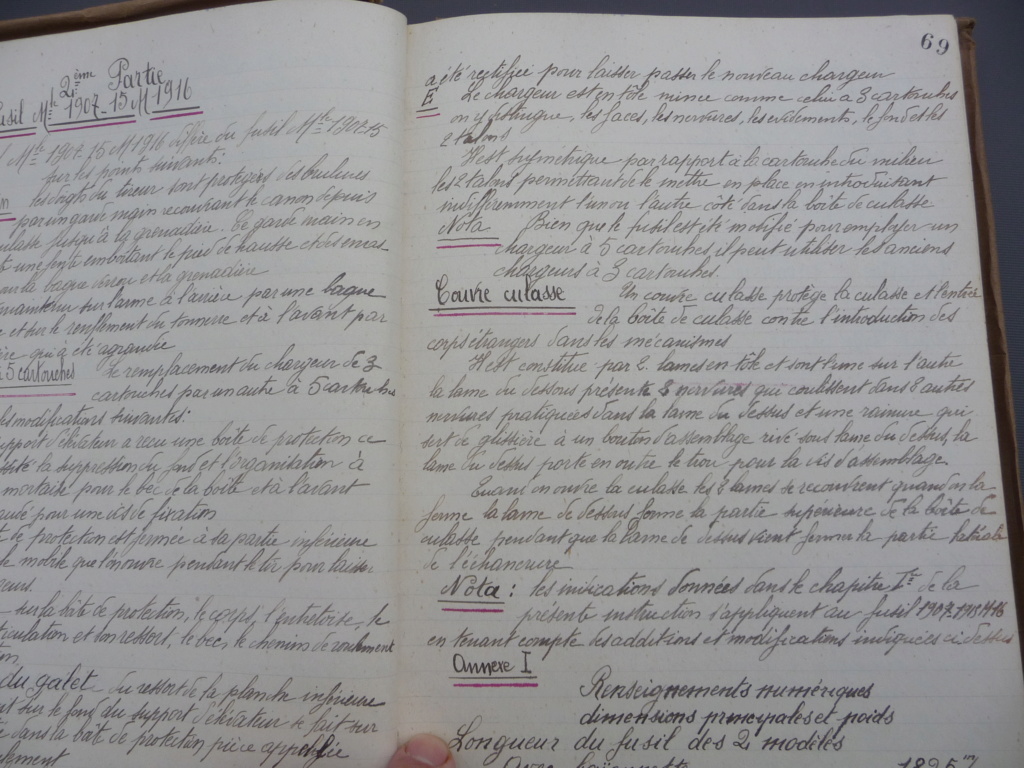 2ème Partie
Fusil Mle 1907-15 M 1916
Mle 1907.15 M 1916 diffère du fusil Mle 1907.15
sur les points suivants:
les doigts du tireur sont protégés des brulures
par un garde main recouvrant le canon depuis
culasse jusqu'à la grenadière. Ce garde main en
une fente emboitant le pied de hausse
la bague et la grenadière
maintenu sur l'arme à l'arrière par une bague
et sur le renflement du tonnerre et à l'avant par
qui a été agrandie
à 5 cartouches Le remplacement du chargeur de 3
cartouches par un autre à 5 cartouches
les modifications suivantes:
support d'élévateur a reçu une boite de protection ce
la suppression du fond et l'organisation à
mortaise pour le bec de la boite et à l'avant
pour une vis de fixation
de protection est fermée à la partie inférieure
mobile que l'on ouvre pendant le tir pour laisser
sur la boite de protection, le corps, l'entretoise, le
articulation et son ressort, le bec, le chemin de roulement
du galet du ressort de la planche inférieure
sur le fond du support d'élévateur se fait sur
dans la boite de protection pièce appelée
69
a été rectifiée pour laisser passer le nouveau chargeur
E Le chargeur est en tôle mince comme celui à 3 cartouches
on y distingue, les faces, les nervures, les évidements, le fond et les
2 talons
Il est symétrique par rapport à la cartouche du milieu
les 2 talons permettant de le mettre en place en introduisant
indifféremment l'un ou l'autre côté dans la boite de culasse
Nota Bien que le fusil est été modifié pour employer un
chargeur à 5 cartouches, il peut utiliser les anciens
chargeurs à 3 cartouches.
Couvre culasse Un couvre culasse protège la culasse et l'entrée
de la boite de culasse contre l'introduction des
corps étrangers dans les mécanismes
Il est constitué par 2 lames en tôle et sont l'une sur l'autre
la lame du dessous présente 2 nervures qui coulissent dans 2 autres
nervures pratiquées dans la lame du dessus et une rainure qui
sert de glissière à un bouton d'assemblage rivé sous lame du dessus, la
lame du dessus porte en outre le trou pour la vis d'assemblage.
Quand on ouvre la culasse les 2 lames se recouvrent quand on la
ferme la lame de dessus forme la partie supérieure de la boite de
culasse pendant que la lame de dessous vient fermer la partie latérale
de l'échancrure
Nota: les indications données dans le chapitre Ier de la
présente instruction s'appliquent au fusil 1907.1915 M 16
en tenant compte des additions et modifications indiquées ci dessus
Annexe I
Renseignements numériques
dimensions principales et poids
Longueur du fusil des 2 modèles